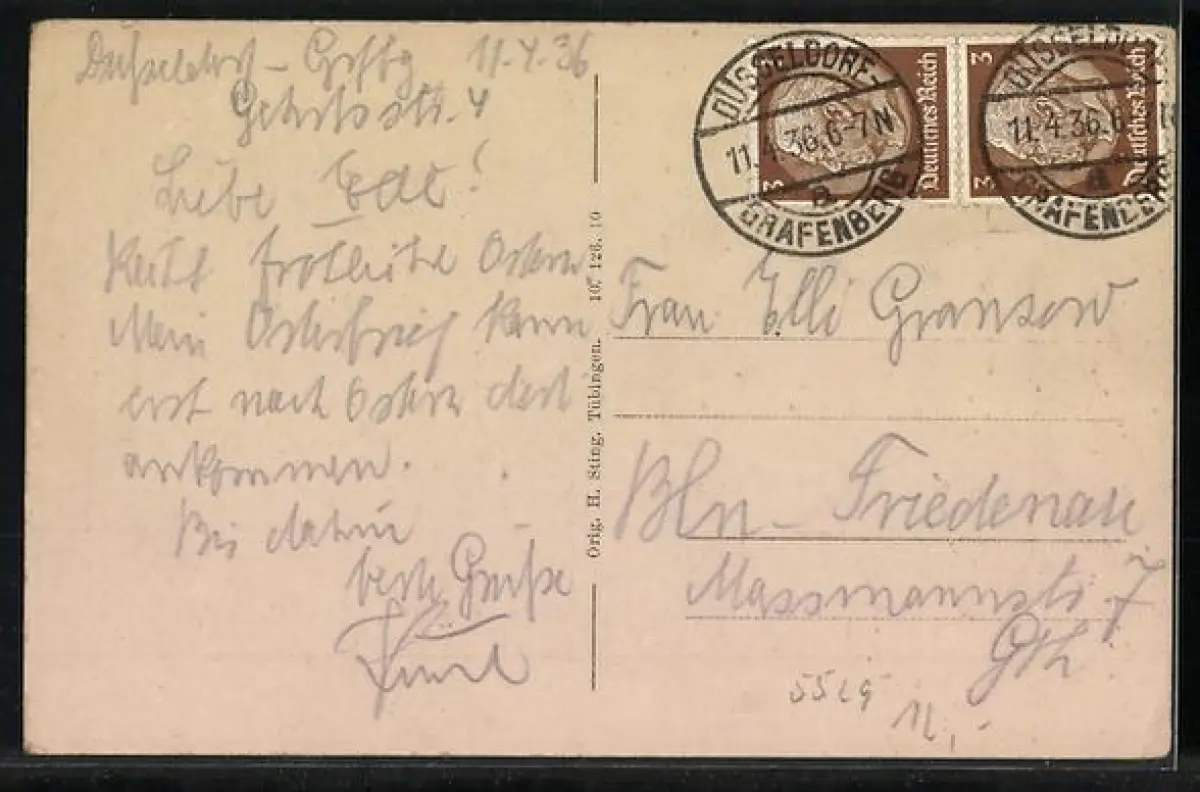 Düsseldorf – Grfbg 11.4.36
4
Liebe
Recht fröhliche Ostern
Mein Osterbrief kann
erst nach Ostern dort
ankommen.
Bis dahin
beste Grüße
Orig. H. Sting, Tübingen. 10. 126. 10
DÜSSELDORF-
11.4.36.6-7N
a
GRAFENBERG
3
Deutsches Reich
DÜSSELDO
11.4.36.6
a
GRAFENBER
3
3
Deutsches Reich
Frau Elli Gransow
Bln – Friedenau
Massmannstr. 7
Gth
11,-